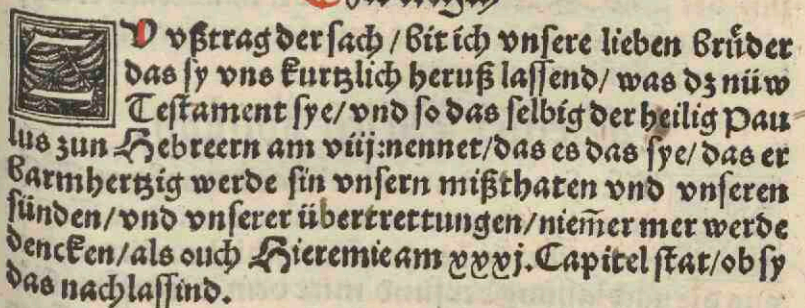 ZV vßtrag der sach / bit ich vnsere lieben brůder
das sy vns kurtzlich heruß lassend / was dz nüw
Testament sye / vnd so das selbig der heilig Pau
lus zun Hebreern am viij: nennet / das es das sye / das er
barmhertzig werde sin vnsern mißthaten vnd vnseren
sünden / vnd vnserer übertrettungen / niem̃er mer werde
dencken / als ouch Hieremie am xxxj. Capitel stat / ob sy
das nachlassind.